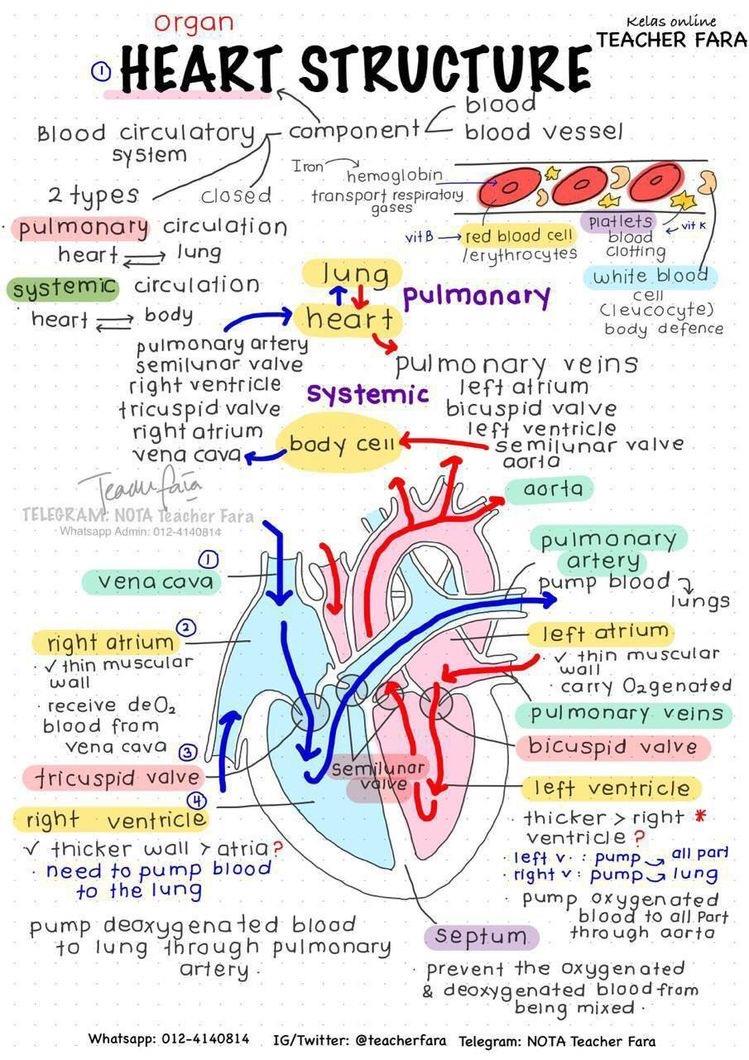 organ
Kelas online
TEACHER FARA
① HEART STRUCTURE
Blood circulatory system
component
blood
blood vessel
2 types
closed
pulmonary circulation
heart ⇌ lung
systemic circulation
heart ⇌ body
Iron
hemoglobin
transport respiratory
gases
vit B → red blood cell
/erythrocytes
platlets
blood
clotting
vit K
white blood
cell
(leucocyte)
body defence
lung
heart
pulmonary
pulmonary artery
semilunar valve
right ventricle
tricuspid valve
right atrium
vena cava
systemic
body cell
pulmonary veins
left atrium
bicuspid valve
left ventricle
semilunar valve
aorta
Teacher fara
TELEGRAM: NOTA Teacher Fara
Whatsapp Admin: 012-4140814
①
vena cava
② right atrium
· ✓ thin muscular
wall
· receive deO2
blood from
vena cava
③
tricuspid valve
④
right ventricle
✓ thicker wall > atria?
· need to pump blood
to the lung
pump deoxygenated blood
to lung through pulmonary
artery.
semilunar
valve
aorta
pulmonary
artery
pump blood
lungs
left atrium
· ✓ thin muscular
wall
· carry O2genated
pulmonary veins
bicuspid valve
left ventricle
· thicker > right *
ventricle ?
· left v. : pump → all part
· right v : pump → lung
· pump oxygenated
blood to all part
through aorta
septum
· prevent the oxygenated
& deoxygenated blood from
being mixed.
Whatsapp: 012-4140814 IG/Twitter: @teacherfara Telegram: NOTA Teacher Fara